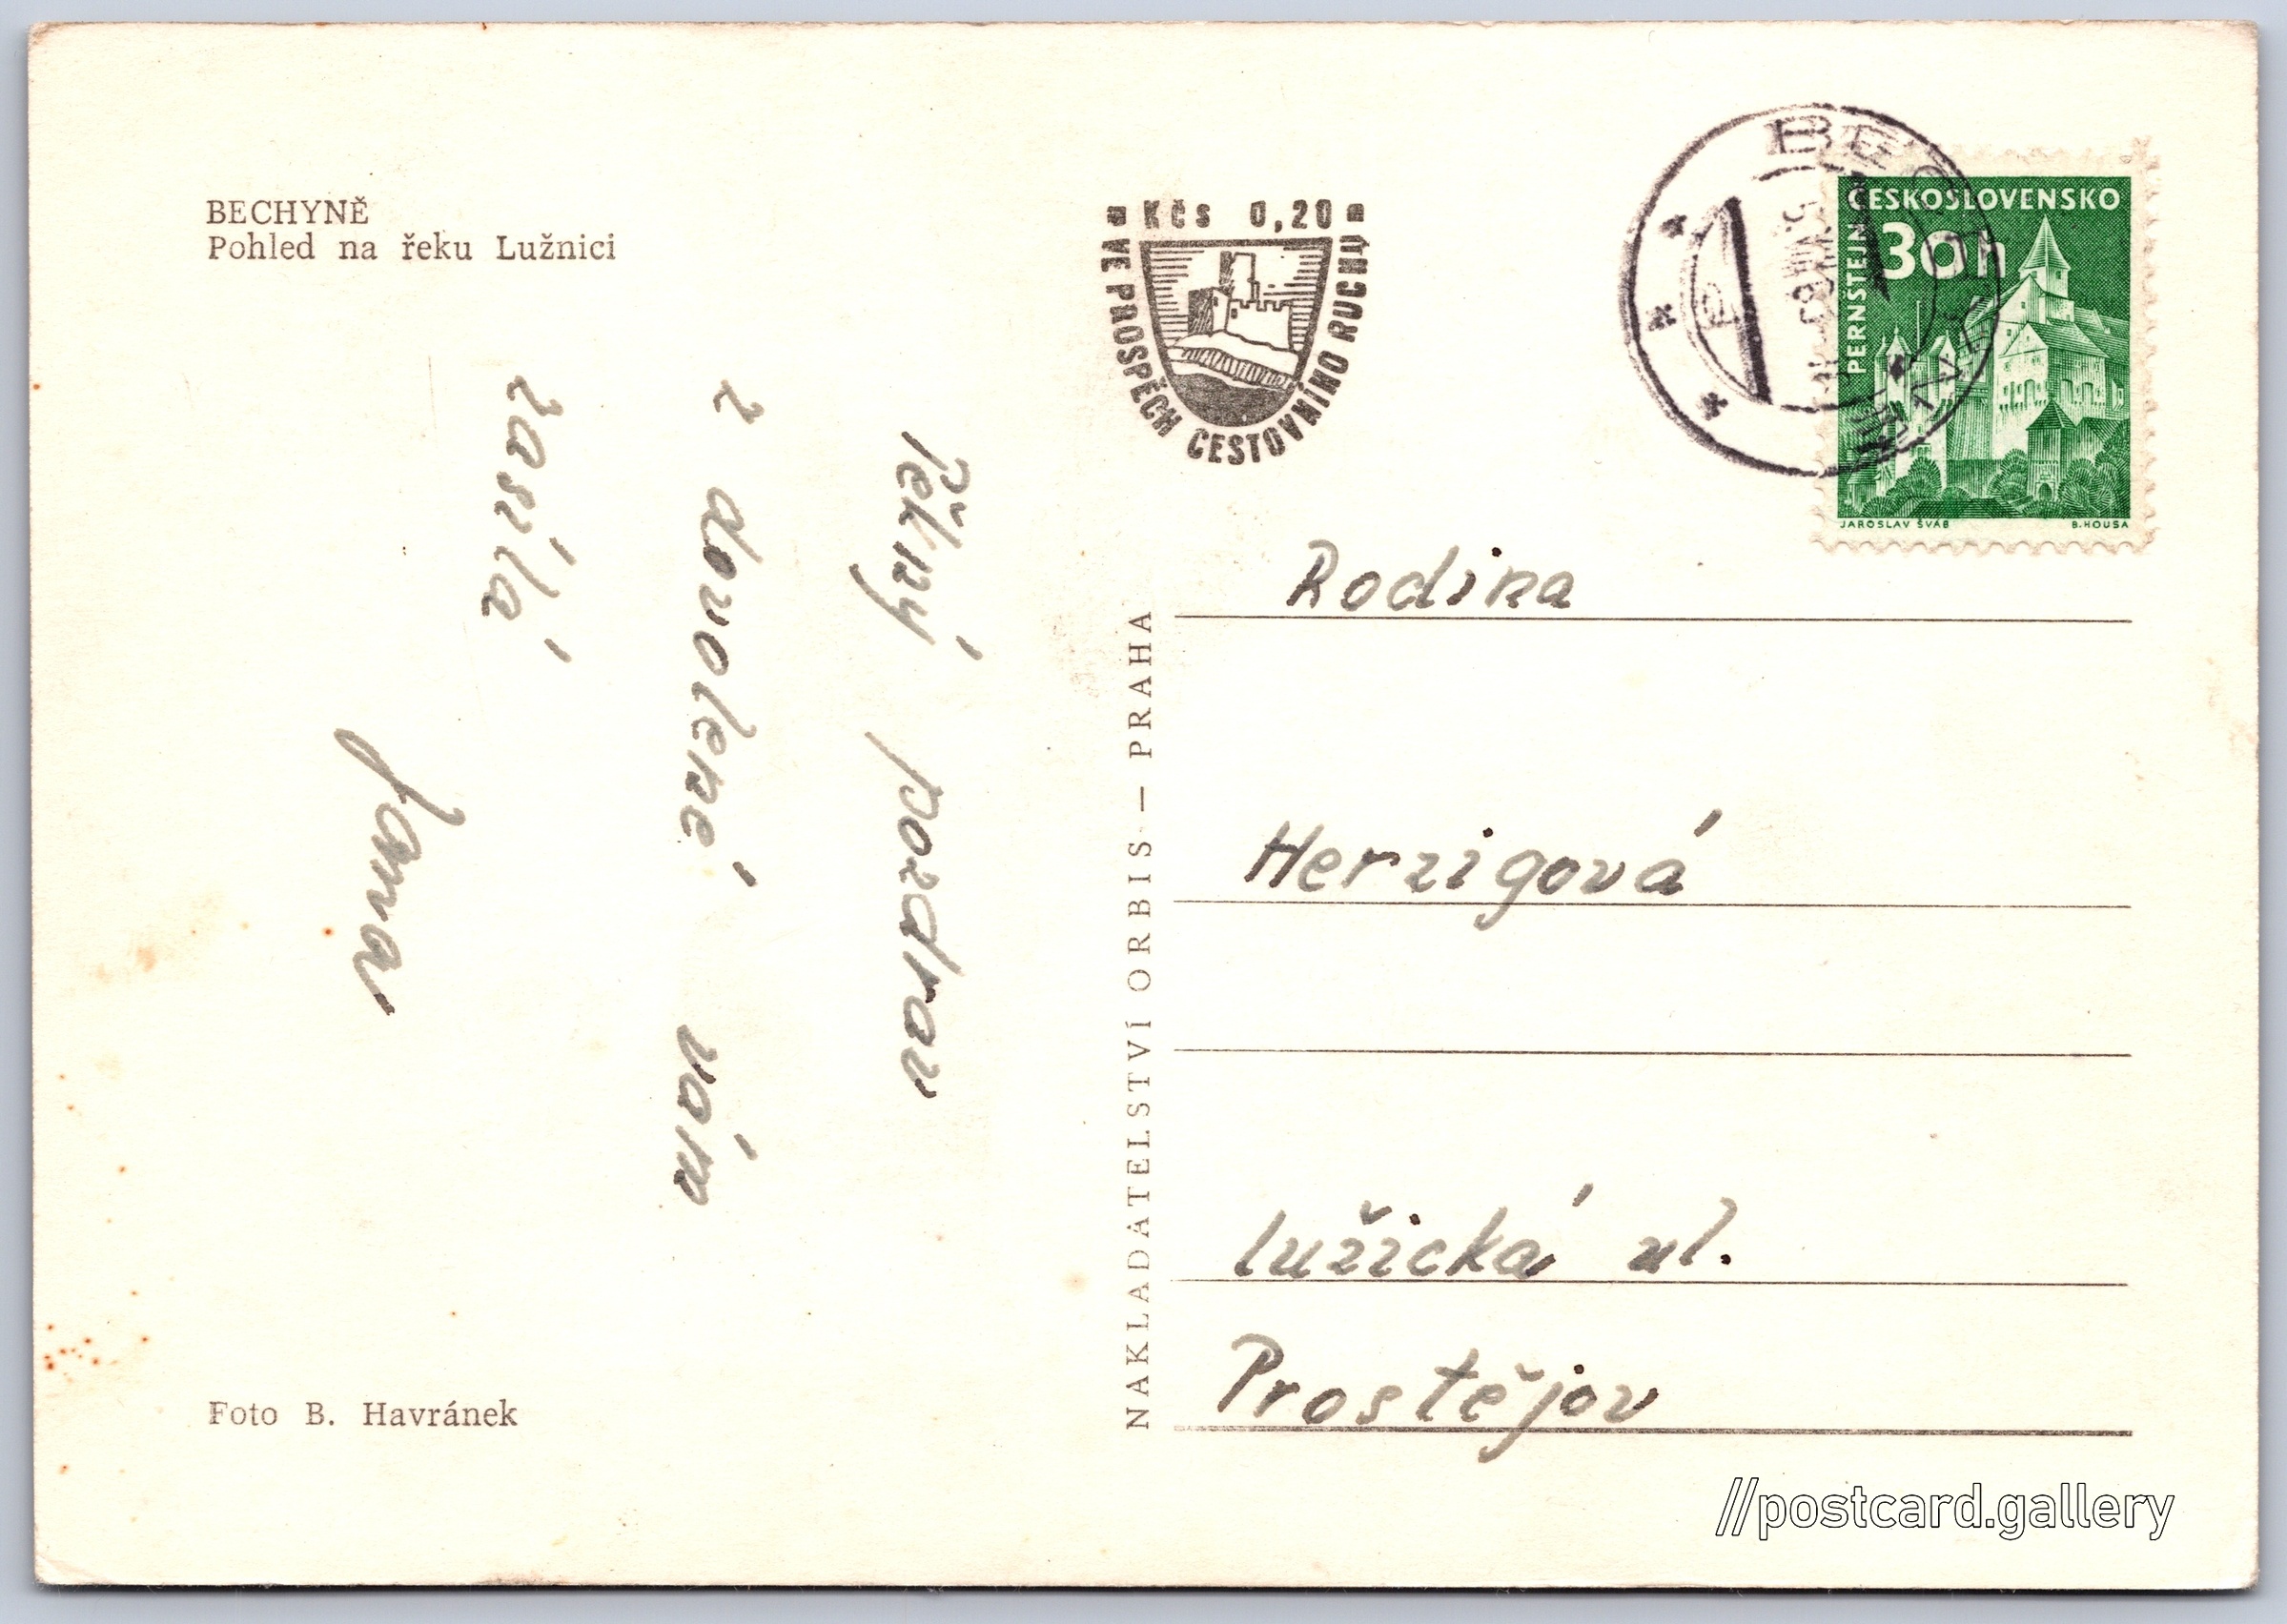 BECHYNĚ
Pohled na řeku Lužnici
Pěkný pozdrav
z dovolené vám
zasílá
Jana
Foto B. Havránek
NAKLADATELSTVÍ ORBIS — PRAHA
Kčs 0,20
VE PROSPĚCH CESTOVNÍHO RUCHU
ČESKOSLOVENSKO
30h
PERNŠTEJN
JAROSLAV ŠVÁB B. HOUSA
Rodina
Herzigová
Lužická ul.
Prostějov
//postcard.gallery